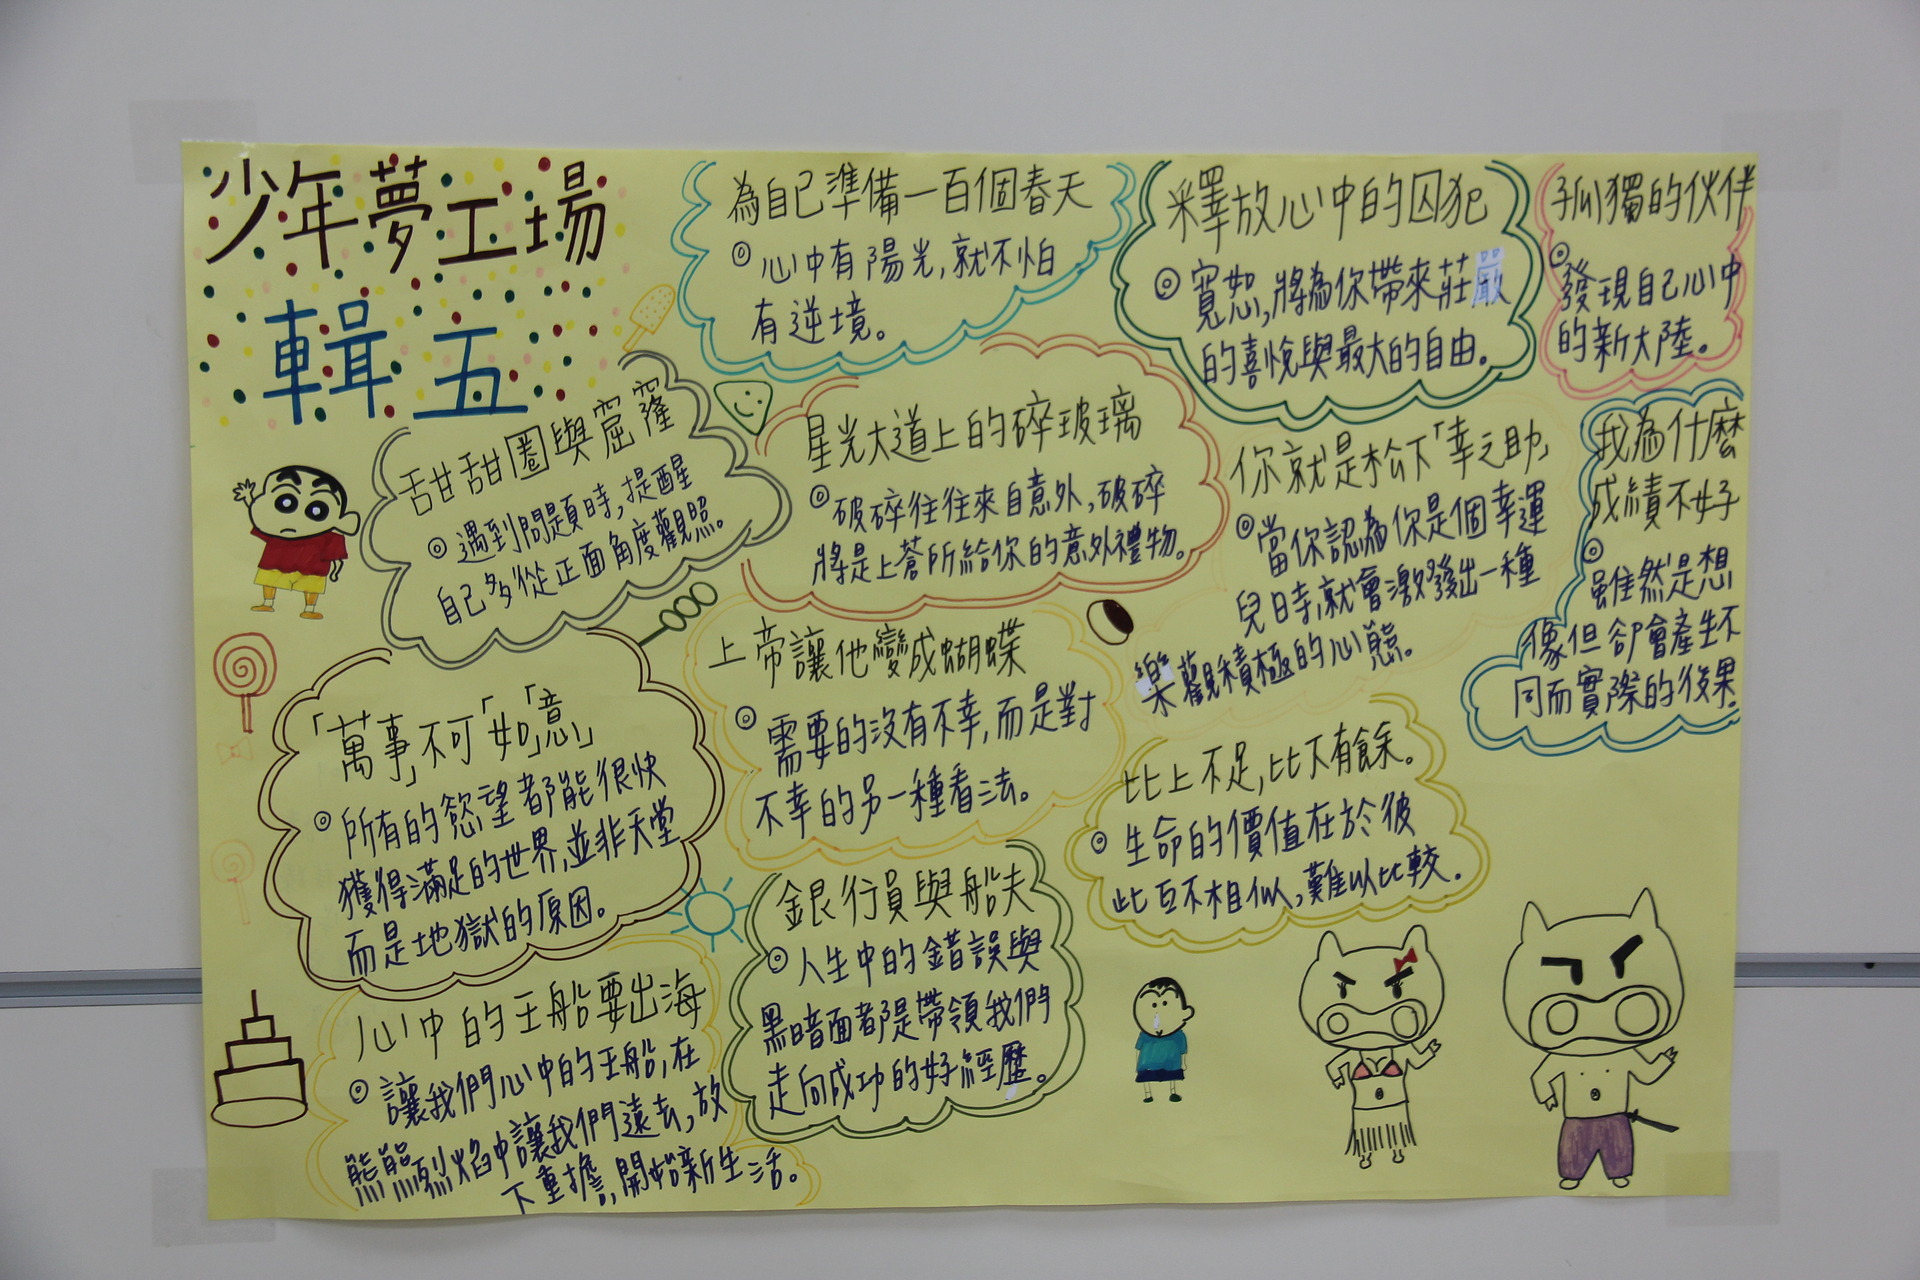 少年夢工場
輯五
為自己準備一百個春天
◎心中有陽光,就不怕
有逆境。
釋放心中的囚犯
◎寬恕,將為你帶來莊嚴
的喜悅與最大的自由。
孤獨的伙伴
◎
發現自己心中
的新大陸。
甜甜圈與窟窿
◎遇到問題時,提醒
自己多從正面角度觀照。
星光大道上的碎玻璃
◎破碎往往來自意外,破碎
將是上蒼所給你的意外禮物。
你就是松下「幸之助」
◎當你認為你是個幸運
兒時,就會激發出一種
樂觀積極的心態。
我為什麼
成績不好
◎
雖然是想
像但卻會產生不
同而實際的後果。
「萬事」不可「如」「意」
◎所有的慾望都能很快
獲得滿足的世界,並非天堂
而是地獄的原因。
上帝讓他變成蝴蝶
◎需要的沒有不幸,而是對
不幸的另一種看法。
比上不足,比下有餘。
◎生命的價值在於彼
此互不相似,難以比較。
心中的王船要出海
◎讓我們心中的王船,在
熊熊烈焰中讓我們遠去,放
下重擔,開始新生活。
銀行員與船夫
◎人生中的錯誤與
黑暗面都是帶領我們
走向成功的好經歷。